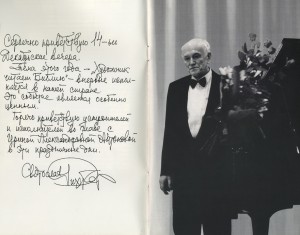 Сердечно приветствую 14-ые
Декабрьские вечера.
Тема этого года – „Художник
читает Библию" – впервые появ-
ляется в нашей стране
Это событие является особенно
ценным.
Горячо приветствую устроителей
и исполнителей во главе с
Ириной Александровной Антоновой
в эти праздничные дни.
Святослав Рихтер